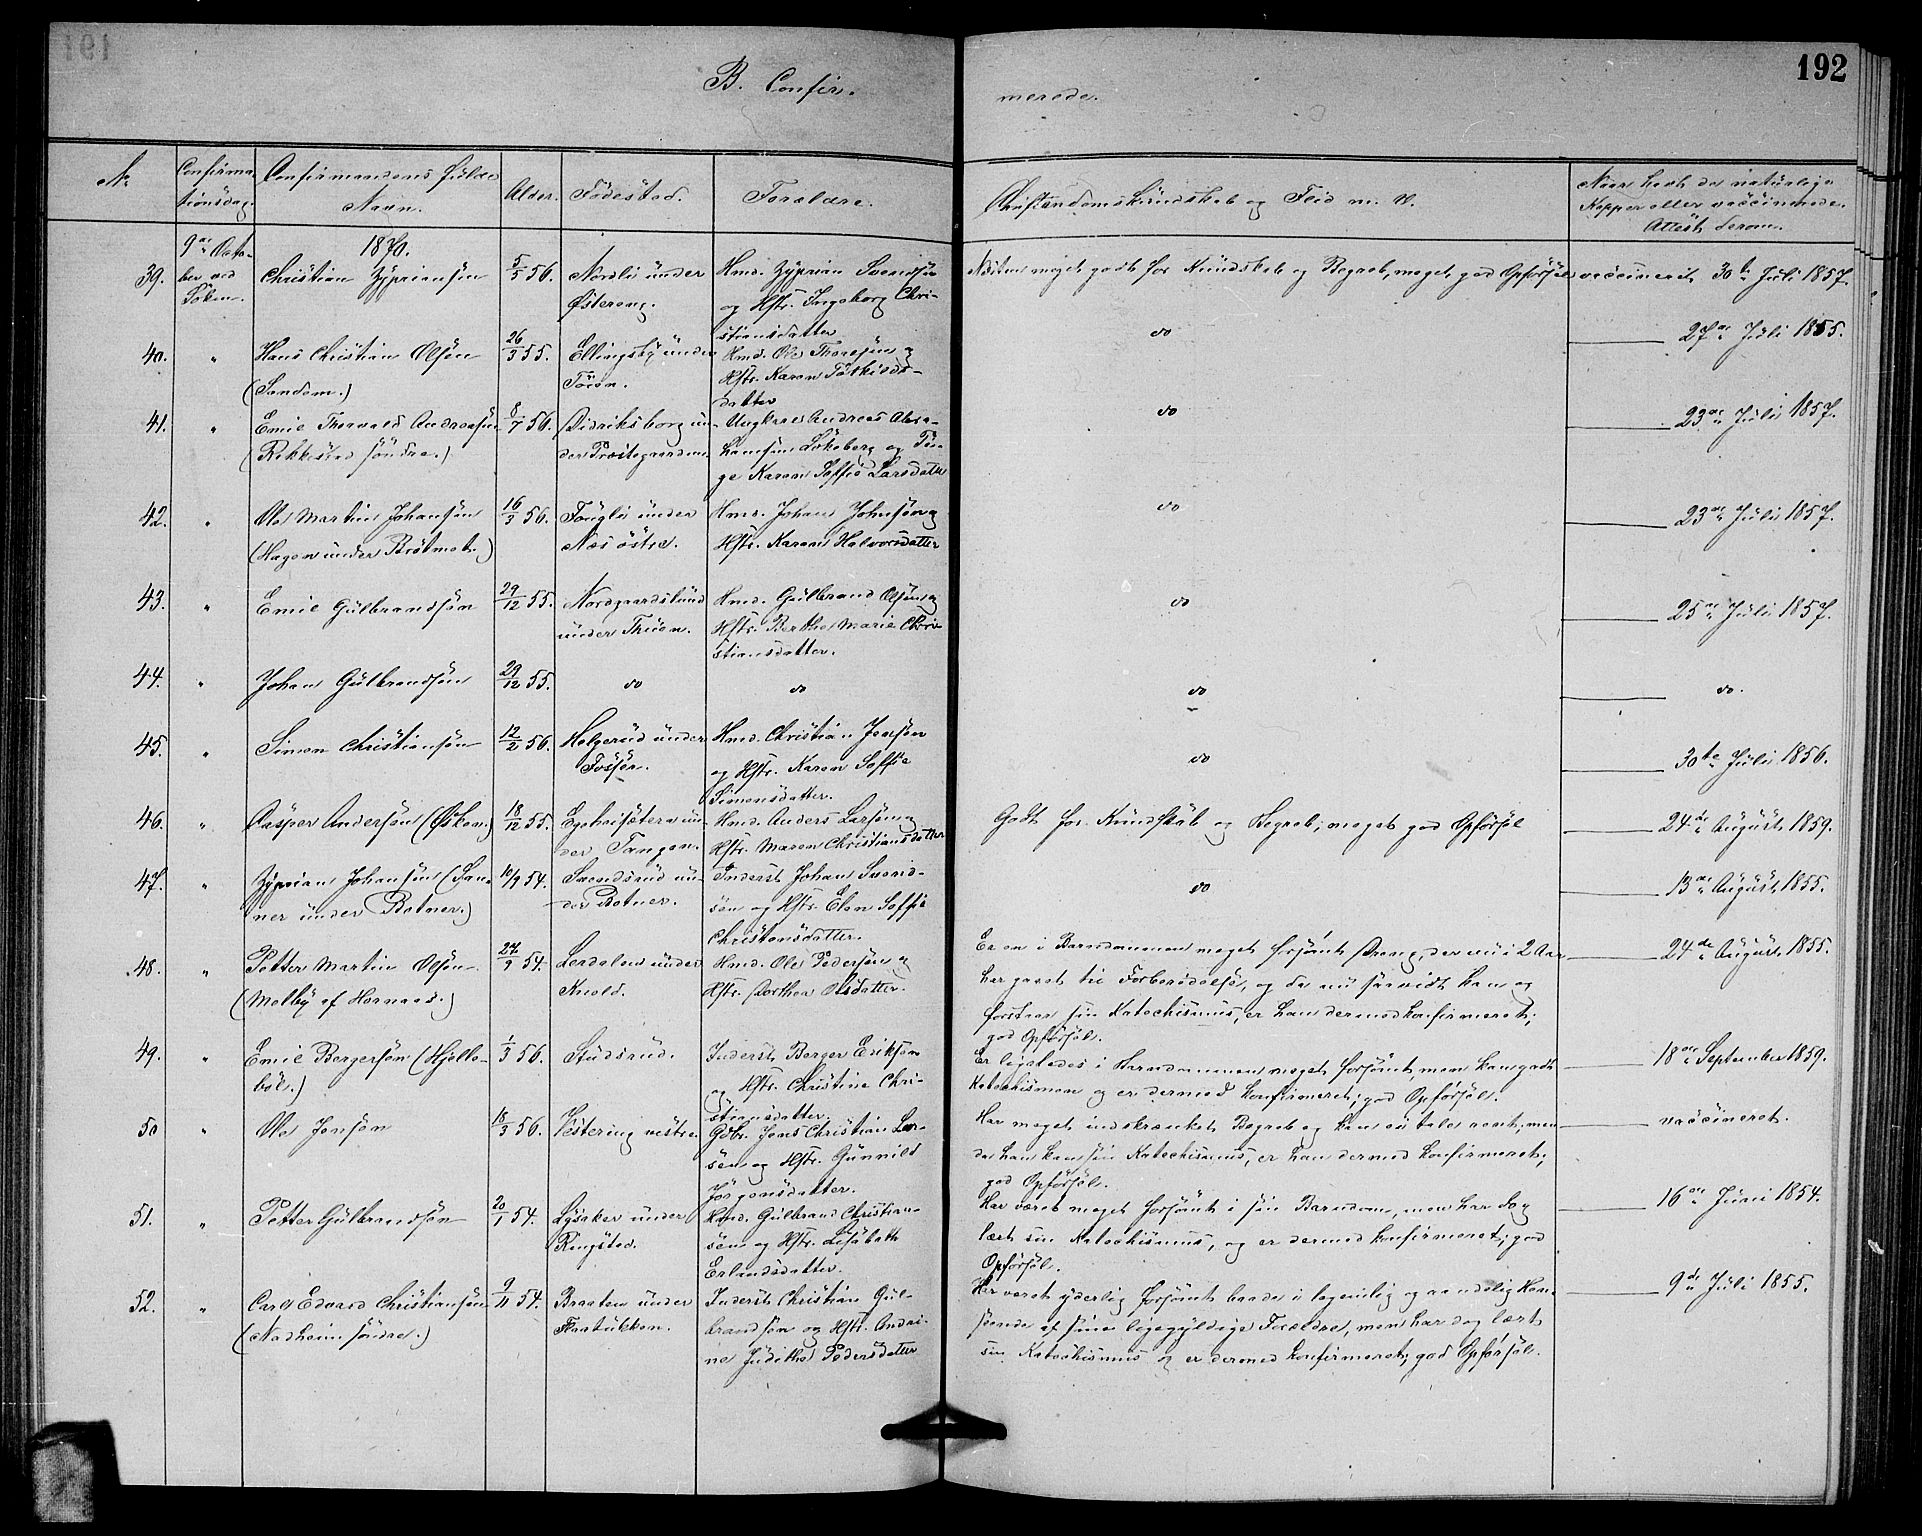 192
B. Confir-
merede.
No
Confirma-
tionsdag.
Confirmandens fulde
Navn.
Alder.
Fødested.
Forældre.
Christendomskundskab og Flid m. V.
Naar havt de naturlige
Kopper eller vaccinerede.
Attest derom.
9de Octo-
ber ved
1870.
39.
Christian Zypriansøn
5/5 56.
Nordli under
Østereng.
Hmd. Zyprian Svendsøn
og Hstr. Ingeborg Chri-
stiansdatter
Næsten meget godt for Kundskab og Begreb, meget god Opførsel
vaccineret 30te Juli 1857.
40.
"
Hans Christian Olsøn
(Sandem.)
26/3 55.
Ellingsby under
Hmd. Ole Thoresøn og
Hstr. Karen
datter
do
27de Juli 1855.
41.
"
Emil Thorvald Andreasøn
(Rakkestad søndre.)
8/7 56.
Didriksborg un-
der Præstegaarden
Ungkarl Andreas Abra-
hamsøn Løkeberg og Pi-
ge Karen Soffie Larsdatter
do
23de Juli 1857.
42.
"
Ole Martin Johansøn
(Hagen under Brøtmet.)
16/3 56.
Fougli under
Næs østre.
Hmd. Johan Johnsøn og
Hstr. Karen Halvorsdatter
do
23de Juli 1857.
43.
"
Emil Gulbrandsøn
29/12 55.
Nordgaardslund
under Thuen.
Hmd. Gulbrand Olsøn og
Hstr. Berthe Marie Chri-
stiansdatter.
do
25de Juli 1857.
44.
"
Johan Gulbrandsøn
29/12 55.
do
do
do
do.
45.
"
Simen Christiansøn
12/2 56.
Helgerud under
Fosser.
Hmd. Christian Jensøn
og Hstr. Karen Soffie
Simensdatter.
do
30te Juli 1856.
46.
"
Casper Andersøn (Østen.)
18/12 55.
un-
der Tangen.
Hmd. Anders Larsøn og
Hstr. Maren Christiansdatter
Godt for Kundskab og Begreb, meget god Opførsel
24de August 1859.
47.
"
Zyprian Johansøn (San-
ner under Botner.)
10/9 54.
Svendsrud un-
der Botner.
Inderst Johan Svend-
søn og Hstr. Elen Soffie
Christensdatter.
do
13de August 1855.
48.
"
Petter Martin Olsøn
(Melby af Hærnæs.)
27/9 54.
Lerdalen under
Kvold.
Hmd. Ole Pedersøn og
Hstr. Dorthea Olsdatter.
Er en i Barndommen meget forsømt Dreng, der nu i 2 Aar
har gaaet til Forberedelse, og da nu saavidt kan og
forstaar sin Katechismus, er han dermed konfirmeret;
god Opførsel.
24de August 1855.
49.
"
Emil Bergersøn (Hjelle-
bøl.)
1/3 56.
Studsrud.
Inderst Berger Eriksøn
og Hstr. Christine Chri-
stiansdatter.
Er ligeledes i Barndommen meget forsømt, men kan godt
Katechismen og er dermed konfirmeret; god Opførsel.
18de September 1859.
50
"
Ole Jensøn
18/3 56.
Vestereng vestre.
Gdbr. Jens Christian Lar-
søn og Hstr. Gunnild
Jørgensdatter.
Har meget indskrænket Begreb og kan ei tale rent; men
da han kan sin Katechismus, er han dermed konfirmeret;
god Opførsel.
vaccineret.
51.
"
Petter Gulbrandsøn
20/1 54.
Lysaker under
Ringstad.
Hmd. Gulbrand Christian-
søn og Hstr. Lisabeth
Erlandsdatter.
Har været meget forsømt i sin Barndom, men har dog
lært sin Katechismus, og er dermed konfirmeret; god
Opførsel.
16de Juni 1854.
52.
"
Carl Edvard Christiansøn
(Nadheim søndre.)
9/11 54.
Braaten under
Inderst Christian Gul-
brandsøn og Hstr. Andri-
ne Judithe Pedersdatter
Har været yderlig forsømt baade i legemlig og aandelig Hen-
seende af sine ligegyldige Forældre, men har dog lært
sin Katechismus og er dermed konfirmeret; god Opførsel.
9de Juli 1855.